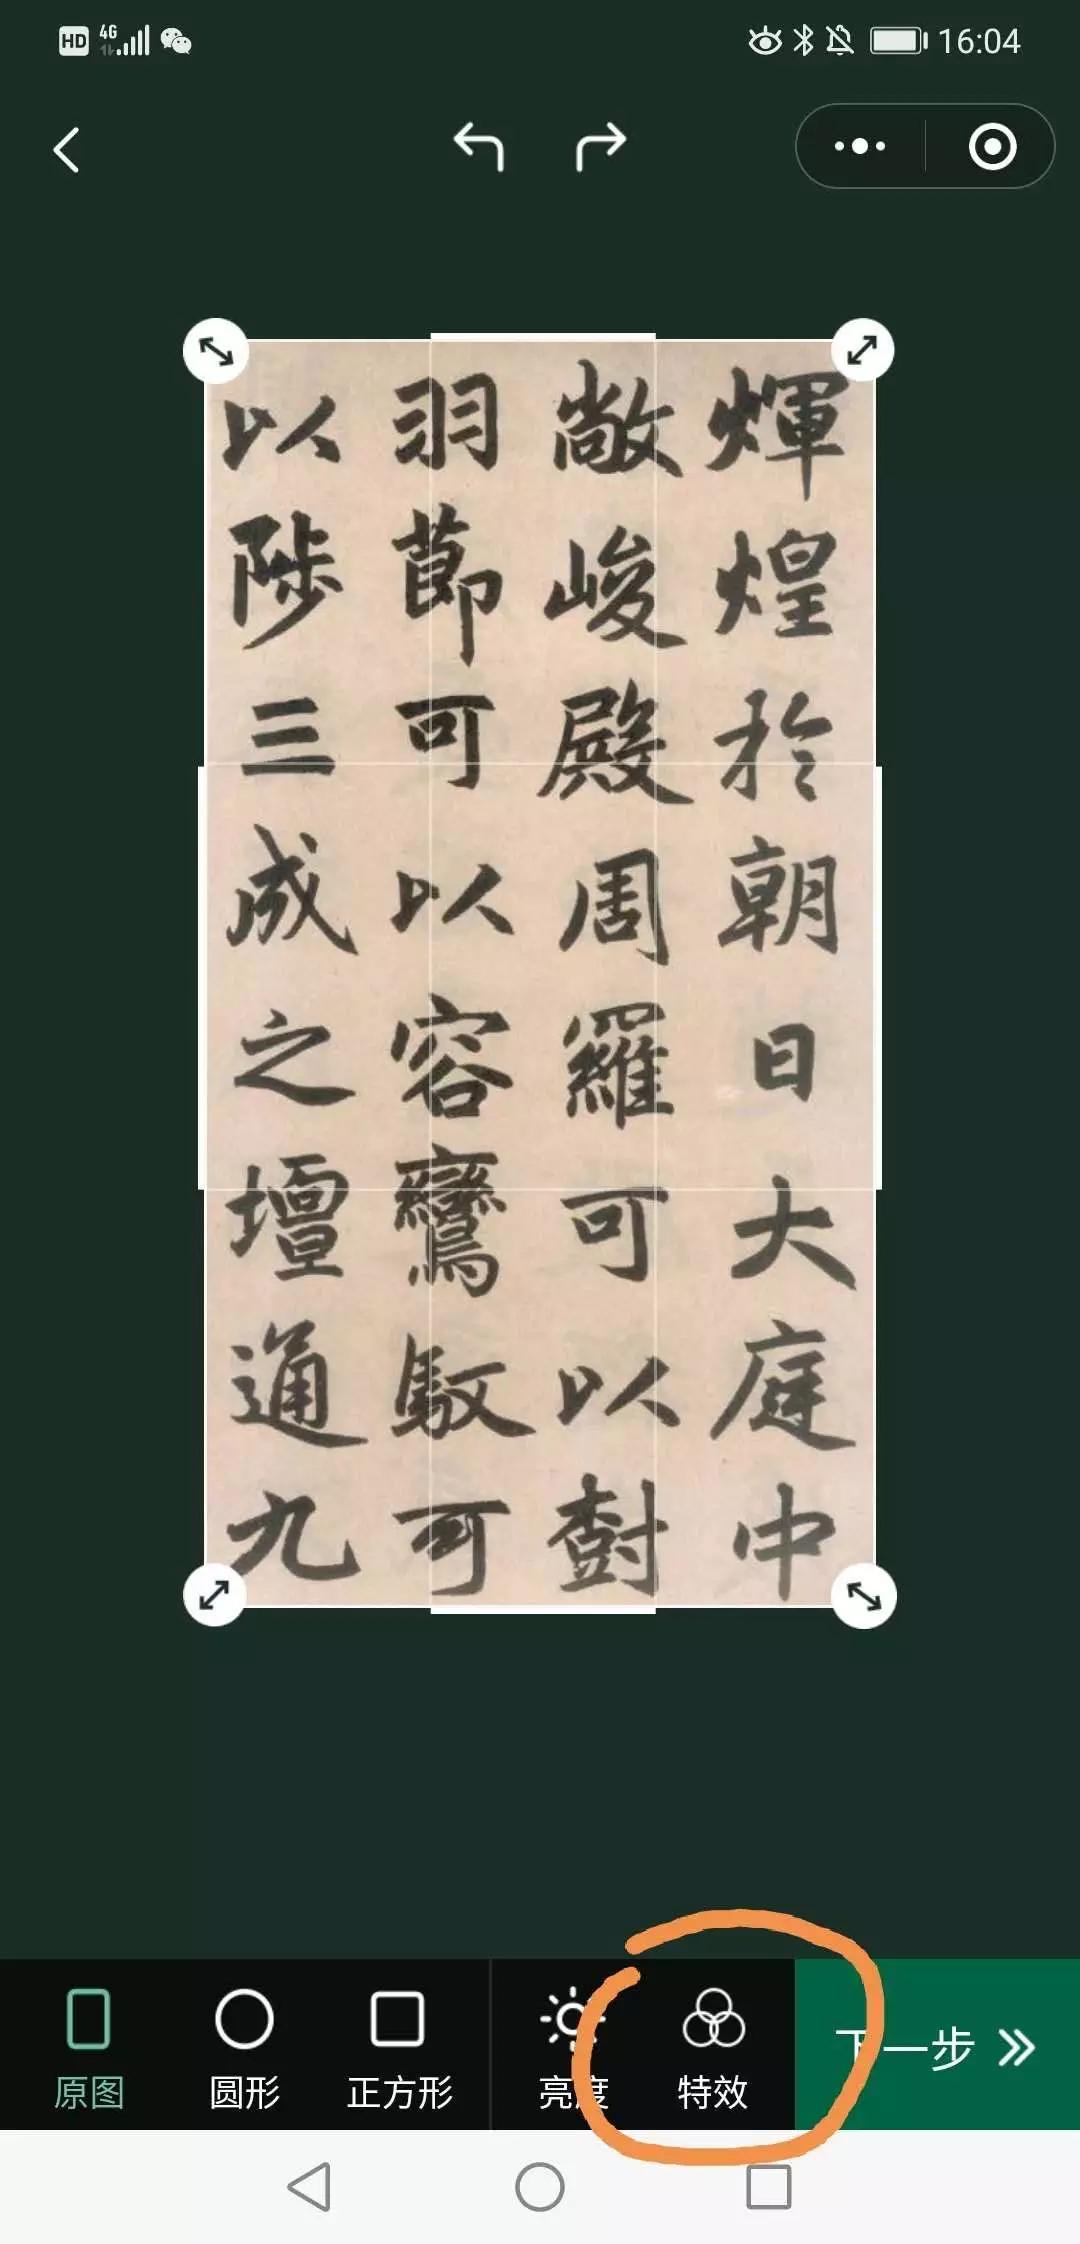 HD 4G 16:04
輝煌於朝日大庭中
敞峻殿周羅可以樹
羽節可以容鸞馭可
以陟三成之壇通九
原图 圆形 正方形 亮度 特效 下一步